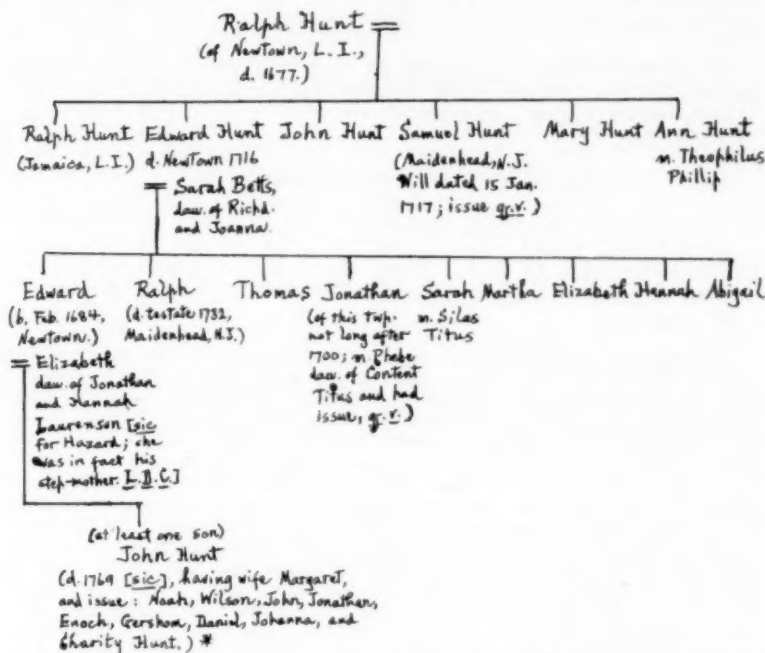 Ralph Hunt
(of Newtown, L. I.,
d. 1677.)
Ralph Hunt
(Jamaica, L.I.)
Edward Hunt
d. Newtown 1716
Sarah Betts,
daw. of Richd.
and Joanna.
John Hunt
Samuel Hunt
(Maidenhead, N.J.
Will dated 15 Jan.
1717; issue q.v.)
Mary Hunt
Ann Hunt
m. Theophilus
Phillip
Edward
(b. Feb. 1684,
Newtown.)
Elizabeth
daw. of Jonathan
and Hannah
Laurenson [sic
for Hazard; she
was in fact his
step-mother. L.B.C.]
Ralph
(d. testate 1732,
Maidenhead, N.J.)
Thomas
Jonathan
(of this twp.
not long after
1700; m. Phebe
daw. of Content
Titus and had
issue, q.v.)
Sarah
m. Silas
Titus
Martha
Elizabeth
Hannah
Abigail
(at least one son)
John Hunt
(d. 1769 [sic], having wife Margaret,
and issue: Noah, Wilson, John, Jonathan,
Enoch, Gershom, Daniel, Johanna, and
Charity Hunt.) *